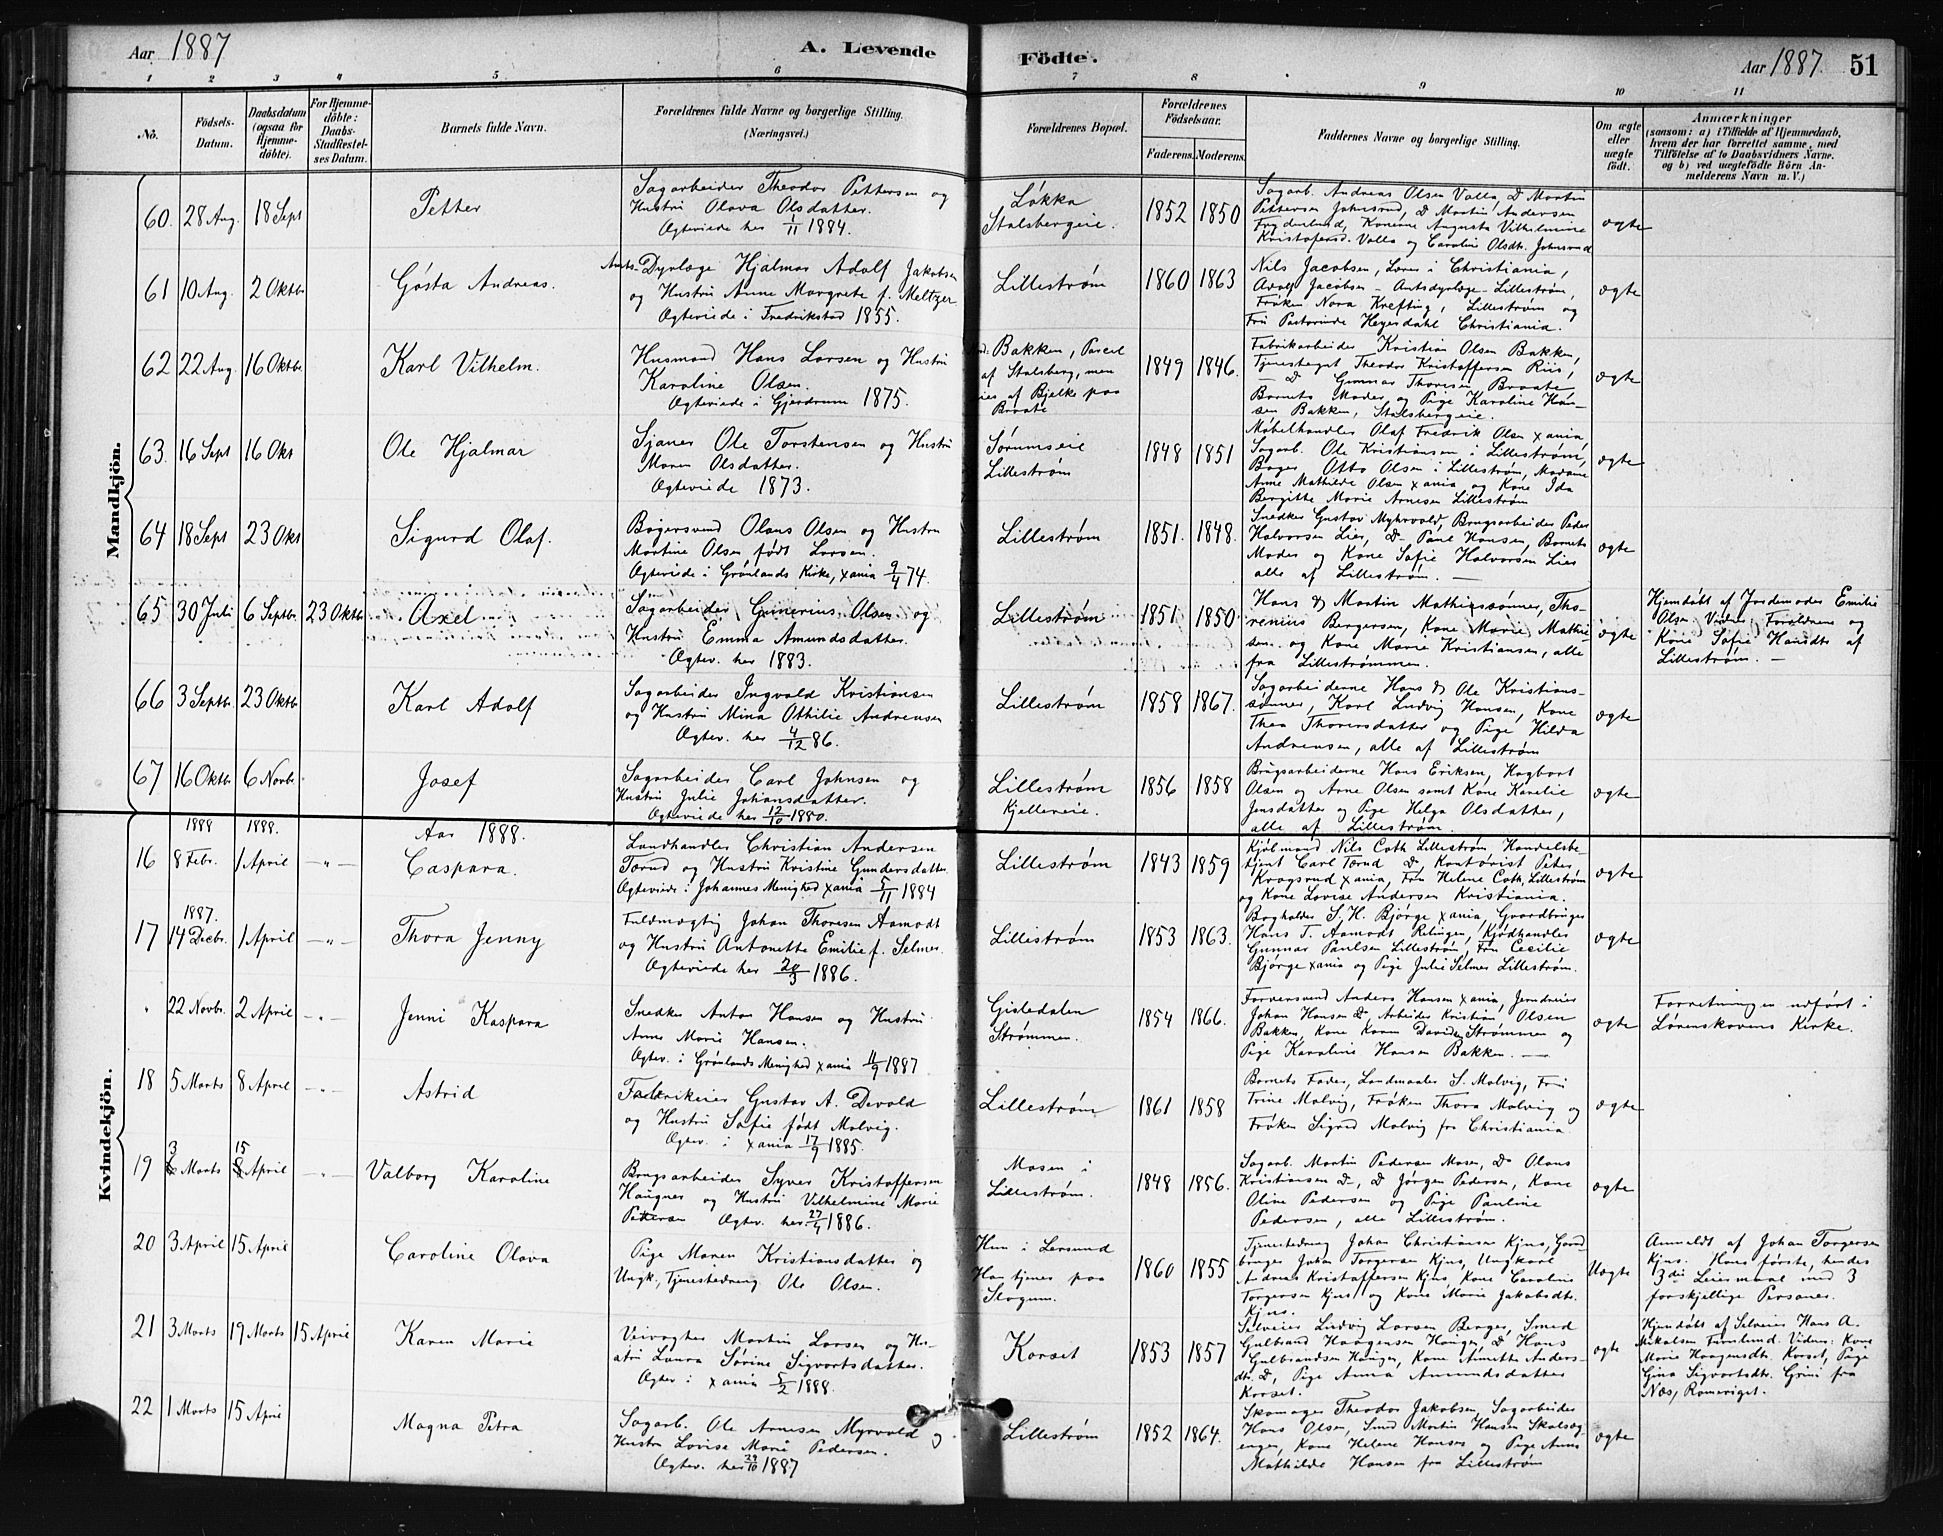 Aar 1887
A. Levende
Födte.
Aar 1887.
51
1 2 3 4 5 6 7 8 9 10 11
No.
Födsels-
Datum.
Daabsdatum
(ogsaa for
Hjemme-
döbte).
For Hjemme-
döbte:
Daabs-
Stadfæstel-
ses Datum.
Barnets fulde Navn.
Forældrenes fulde Navne og borgerlige Stilling.
(Næringsvei.)
Forældrenes Bopæl.
Forældrenes
Födselsaar.
Faderens. Moderens.
Faddernes Navne og borgerlige Stilling.
Om ægte
eller
uægte
födt.
Anmærkninger
(saasom: a) i Tilfælde af Hjemmedaab,
hvem der har forrettet samme, med
Tilföielse af to Daabsvidners Navne.
og b) ved uægtefödte Börn An-
melderens Navn m. V.)
Mandkjön.
60. 28 Aug. 18 Sept
Petter
Sagarbeider Theodor Pettersen og
Hustru Olava Olsdatter.
Ægteviede her 1/11 1884.
Løkka
Stalsbergeie.
1852 1850
Sagarb. Andreas Olsen Valla, Do Martin
Pettersen Johnsrud, Do Martin Andersen
Frydenlund, Konerne Augusta Vilhelmine
Kristofersd. Valla og Caroline Olsdt. Johnsrud
ægte
61 10 Aug. 2 Oktbr
Gösta Andreas.
Amts-Dyrlæge Hjalmar Adolf Jakobsen
og Hustru Anne Margrete f. Meltzer
Ægteviede i Fredrikstad 1855.
Lillestrøm
1860 1863
Nils Jacobsen, Lærer i Christiania,
Adolf Jacobsen - Amtsdyrlæge - Lillestrøm,
Frøken Nora Krefting, Lillestrøm og
Fru Pastorinde Heyerdahl Christiania.
ægte
62 22 Aug. 16 Oktbr.
Karl Vilhelm.
Husmand Hans Larsen og Hustru
Karoline Olsen.
Ægteviede i Gjerdrum 1875.
Bakken, Parcel
af Stalsberg, men
eies af Bjelke paa
Braate
1849 1846.
Fabrikarbeider Kristian Olsen Bakken,
Tjenestegut Theodor Kristoffersen Riis,
— Do Gunnar Thoresen Braate
Barnets Moder og Pige Karoline Han-
sen Bakken, Stalsbergeie.
ægte
63. 16 Sept 16 Okt
Ole Hjalmar
Sjauer Ole Torstensen og Hustru
Maren Olsdatter.
Ægteviede 1873.
Sørumseie
Lillestrøm
1848 1851
Møbelhandler Olaf Fredrik Olsen Xania,
Sagarb. Ole Kristiansen i Lillestrøm,
Bager Otto Olsen i Lillestrøm, Madame
Anne Mathilde Olsen Xania og Kone Ida
Bergitte Marie Arnesen Lillestrøm
ægte
64 18 Sept 23 Okt
Sigurd Olaf.
Bagersvend Olaus Olsen og Hustru
Martine Olsen født Larsen.
Ægteviede i Grønlands Kirke, Xania 9/4 74.
Lillestrøm
1851. 1848.
Snedker Gustav Myhrvold, Brugsarbeider Peder
Halvorsen Lier, Do Paul Hansen, Barnets
Moder og Kone Sofie Halvorsen Lier
alle af Lillestrøm. —
ægte
65 30 Juli 6 Septbr. 23 Oktbr.
Axel
Sagarbeider Gunerius Olsen og
Hustru Emma Amundsdatter.
Ægtev. her 1883.
Lillestrøm
1851. 1850
Hans & Martin Mathissønner, Tho-
renius Bergersen, Kone Marie Mathi-
sen. og Kone Marie Kristiansen, alle
fra Lillestrømmen.
ægte
Hjemdøbt af Jordemoder Emilie
Olsen. Vidner: Forældrene og
Kone Sofie Hansdtr af
Lillestrøm. —
66 3 Septbr. 23 Oktbr
Karl Adolf
Sagarbeider Ingvald Kristiansen
og Hustru Mina Othilie Andreasen
Ægtev. her 4/12 86.
Lillestrøm
1858 1867.
Sagarbeiderne Hans & Ole Kristians-
sønner, Karl Ludvig Hansen, Kone
Thea Thorersdatter og Pige Hilda
Andreasen, alle af Lillestrøm
ægte
67 16 Oktbr 6 Novbr.
Josef
Sagarbeider Carl Johnsen og
Hustru Julie Johansdatter.
Ægteviede her 12/10 1880.
Lillestrøm
Kjellereie.
1856 1858
Brugsarbeiderne Hans Eriksen, Hagbart
Olsen og Arne Olsen samt Kone Karelie
Jensdatter og Pige Helga Olsdatter,
alle af Lillestrøm.
ægte
Kvindekjön.
1888 1888.
Aar 1888.
16 8 Febr. 1 April — " —
Caspara.
Landhandler Christian Andersen
Torud og Hustru Kristine Gundersdatter.
Ægteviede i Johannes Menighed Xania 5/11 1884
Lillestrøm
1843 1859
Kjølmand Nils Coth Lillestrøm Handelsbe-
tjent Carl Torud Do, Kontorist Peter
Krogsrud Xania, Fru Helene Coth, Lillestrøm
og Kone Lovise Andersen Kristiania.
ægte
1887.
17 14 Decbr. 1 April — " —
Thora Jenny
Fuldmægtig Johan Thoresen Aamodt
og Hustru Antonette Emilie f. Selmer.
Ægteviede her 20/3 1886.
Lillestrøm
1853 1863.
Bogholder S. H. Bjørge Xania, Gaardbruger
Hans T. Aamodt Relingen, Kjødhandler
Gunnar Paulsen Lillestrøm, Fru Cecilie
Bjørge Xania og Pige Julie Selmer Lillestrøm.
ægte
" 22 Novbr. 2 April — " —
Jenni Kaspara
Snedker Anton Hansen og Hustru
Anne Marie Hansen.
Ægtev. i Grønlands Menighed Xania 11/9 1887
Gisledalen
Strømmen.
1854 1866.
Farversvend Anders Hansen Xania, Jerndreier
Johan Hansen Do, Arbeider Kristian Olsen
Bakken, Kone Karen Davidsen Strømmen og
Pige Karoline Hansen Bakken. —
ægte
Forretningen udført i
Lørenskovens Kirke.
18 5 Marts 8 April — " —
Astrid
Fabrikeier Gustav A. Devold
og Hustru Sofie født Malvig.
Ægtev. i Xania 17/9 1885.
Lillestrøm
1861 1858
Barnets Fader, Landmaaler S. Malvig, Fru
Trine Malvig, Frøken Thora Malvig og
Frøken Sigrid Malvig fra Christiania.
ægte
19 3 Marts 15 April — " —
Valborg Karoline
Brugsarbeider Syver Kristoffersen
Haugner og Hustru Vilhelmine Marie
Petersen Ægtev. her 27/9 1886.
Mosen i
Lillestrøm.
1848 1856.
Sagarb. Martin Pedersen Mosen, Do Olaus
Kristiansen Do, Do Jørgen Pedersen, Kone
Oline Pedersen og Pige Pauline
Pedersen, alle Lillestrøm.
ægte
20 3 April 15 April
Caroline Olava
Pige Maren Kristiansdatter og
Ungk., Tjenestedreng Ole Olsen.
Hun i Lersund
Han tjener paa
Slogum.
1860 1855
Tjenestedreng Johan Christiansen Kjus, Gaard-
bruger Johan Torgersen Kjus, Ungkarl
Andreas Kristoffersen Kjus, Kone Caroline
Torgersen Kjus og Kone Marie Jakobsdtr.
Kjus.
Uægte
Anmeldt af Johan Torgersen
Kjus. Hans første, hendes
3die Leiermaal med 3
forskjellige Personer.
21 3 Marts 19 Marts 15 Aprile
Karen Marie
Veivogter Martin Larsen og Hu-
stru Laura Sørine Sigvartsdatter.
Ægtev. i Xania 5/2 1888.
Korset
1853 1857
Selveier Ludvig Larsen Berger, Smed
Gulbrand Haagensen Hauger, Do Hans
Gulbrandsen Hauger, Kone Anette Anders-
dtr. Do, Pige Anna Amundsdatter
Korset.
ægte
Hjemdøbt af Selveier Hans A.
Mikalsen Furulund. Vidner: Kone
Marie Haagensdt. Korset, Pige
Gina Sigvartsdt. Grini fra
Næs, Romeriget.
22 1 Marts 15 April
Magna Petra
Sagarb. Ole Arnesen Myrvold og
Hustru Lovise Marie Pedersen.
Ægtev. her 29/10 1887
Lillestrøm
1852 1864.
Skomager Theodor Jakobsen, Sagarbeider
Hans Olsen, Smed Martin Hansen
Kone Helene Hansen og Pige Anna
Mathilde Hansen fra Lillestrøm
ægte